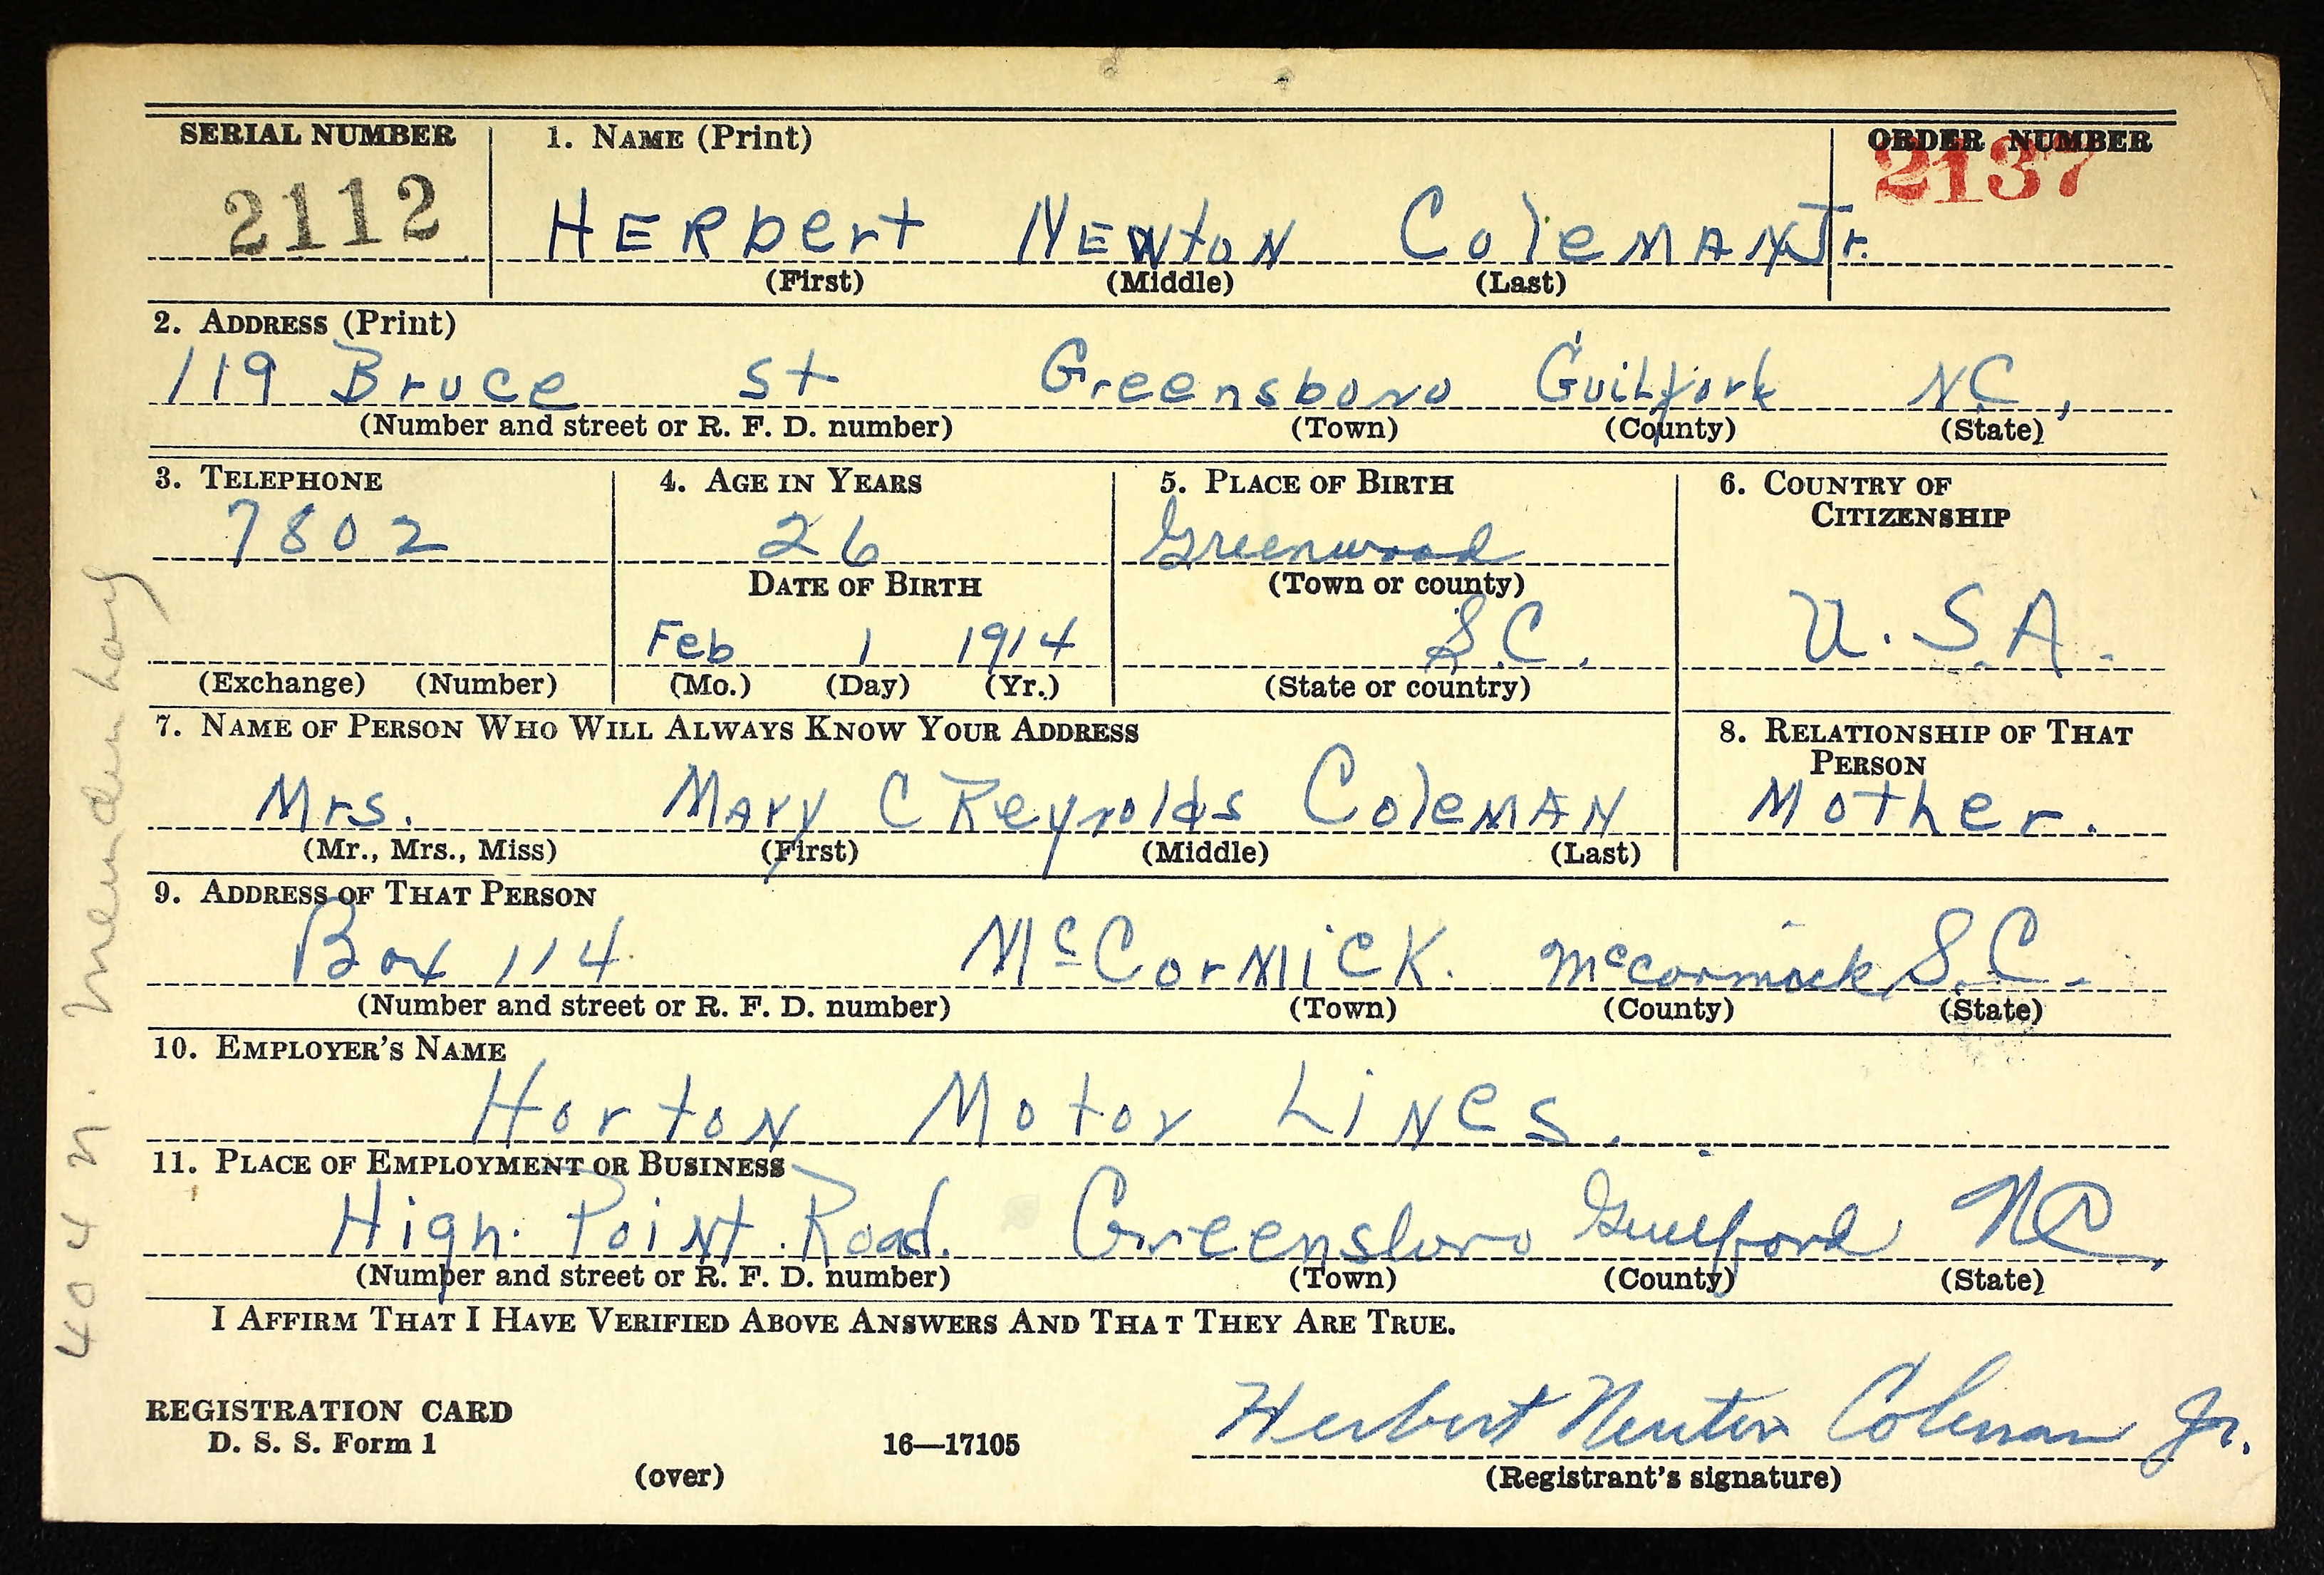 SERIAL NUMBER 1. NAME (Print) ORDER NUMBER
2112 HERbert NEWtoN ColeMAN Jr. 2137
(First) (Middle) (Last)
2. ADDRESS (Print)
119 Bruce St Greensboro Guilford N.C.,
(Number and street or R. F. D. number) (Town) (County) (State)
3. TELEPHONE 4. AGE IN YEARS 5. PLACE OF BIRTH 6. COUNTRY OF CITIZENSHIP
7802 26 Greenwood
DATE OF BIRTH (Town or county)
Feb 1 1914 S.C. U.S.A.
(Exchange) (Number) (Mo.) (Day) (Yr.) (State or country)
7. NAME OF PERSON WHO WILL ALWAYS KNOW YOUR ADDRESS 8. RELATIONSHIP OF THAT PERSON
Mrs. MAry C Reynolds ColeMAN Mother.
(Mr., Mrs., Miss) (First) (Middle) (Last)
9. ADDRESS OF THAT PERSON
Box 114. McCorMicK. McCormick S.C.
(Number and street or R. F. D. number) (Town) (County) (State)
10. EMPLOYER'S NAME
HortoN Motor LiNes.
11. PLACE OF EMPLOYMENT OR BUSINESS
High Point Road. Greensboro Guilford NC,
(Number and street or R. F. D. number) (Town) (County) (State)
I AFFIRM THAT I HAVE VERIFIED ABOVE ANSWERS AND THAT THEY ARE TRUE.
REGISTRATION CARD
D. S. S. Form 1 16—17105 Herbert Newton Coleman Jr.
(over) (Registrant's signature)
404 N. Mendenhall